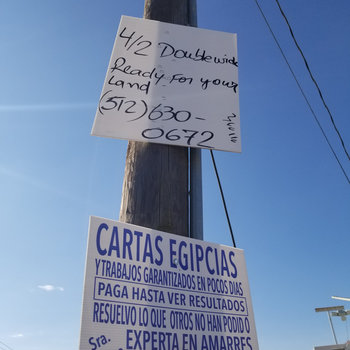 4/2 Doublewide
Ready For your
Land
(512) 630-
0672
CARTAS EGIPCIAS
Y TRABAJOS GARANTIZADOS EN POCOS DIAS
PAGA HASTA VER RESULTADOS
RESUELVO LO QUE OTROS NO HAN PODIDO
Sra. EXPERTA EN AMARRES